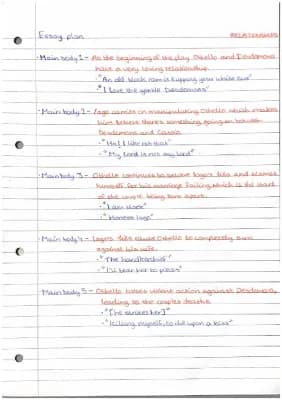 Essay plan RELATIONSHIPS
Main body 1 - At the beginning of the play Othello and Desdemona
have a very loving relationship.
• "An old black ram is tupping your white ewe"
• "I love the gentle Desdemona"
Main body 2 - Iago carries on manipulating Othello which makes
him believe there's something going on between
Desdemona and Cassio.
• "Ha! I like not that"
• "My lord is not my lord"
Main body 3 - Othello continues to believe Iago's lies and blames
himself for his marriage failing, which is the start
of the couple being torn apart.
• "I am black"
• "Honest Iago"
Main body 4 - Iago's lies cause Othello to completely turn
against his wife.
• "The handkerchief!"
• "I'll tear her to pieces"
Main body 5 - Othello takes violent action against Desdemona,
leading to the couple's deaths.
• "[He strikes her]"
• "Killing myself, to die upon a kiss"